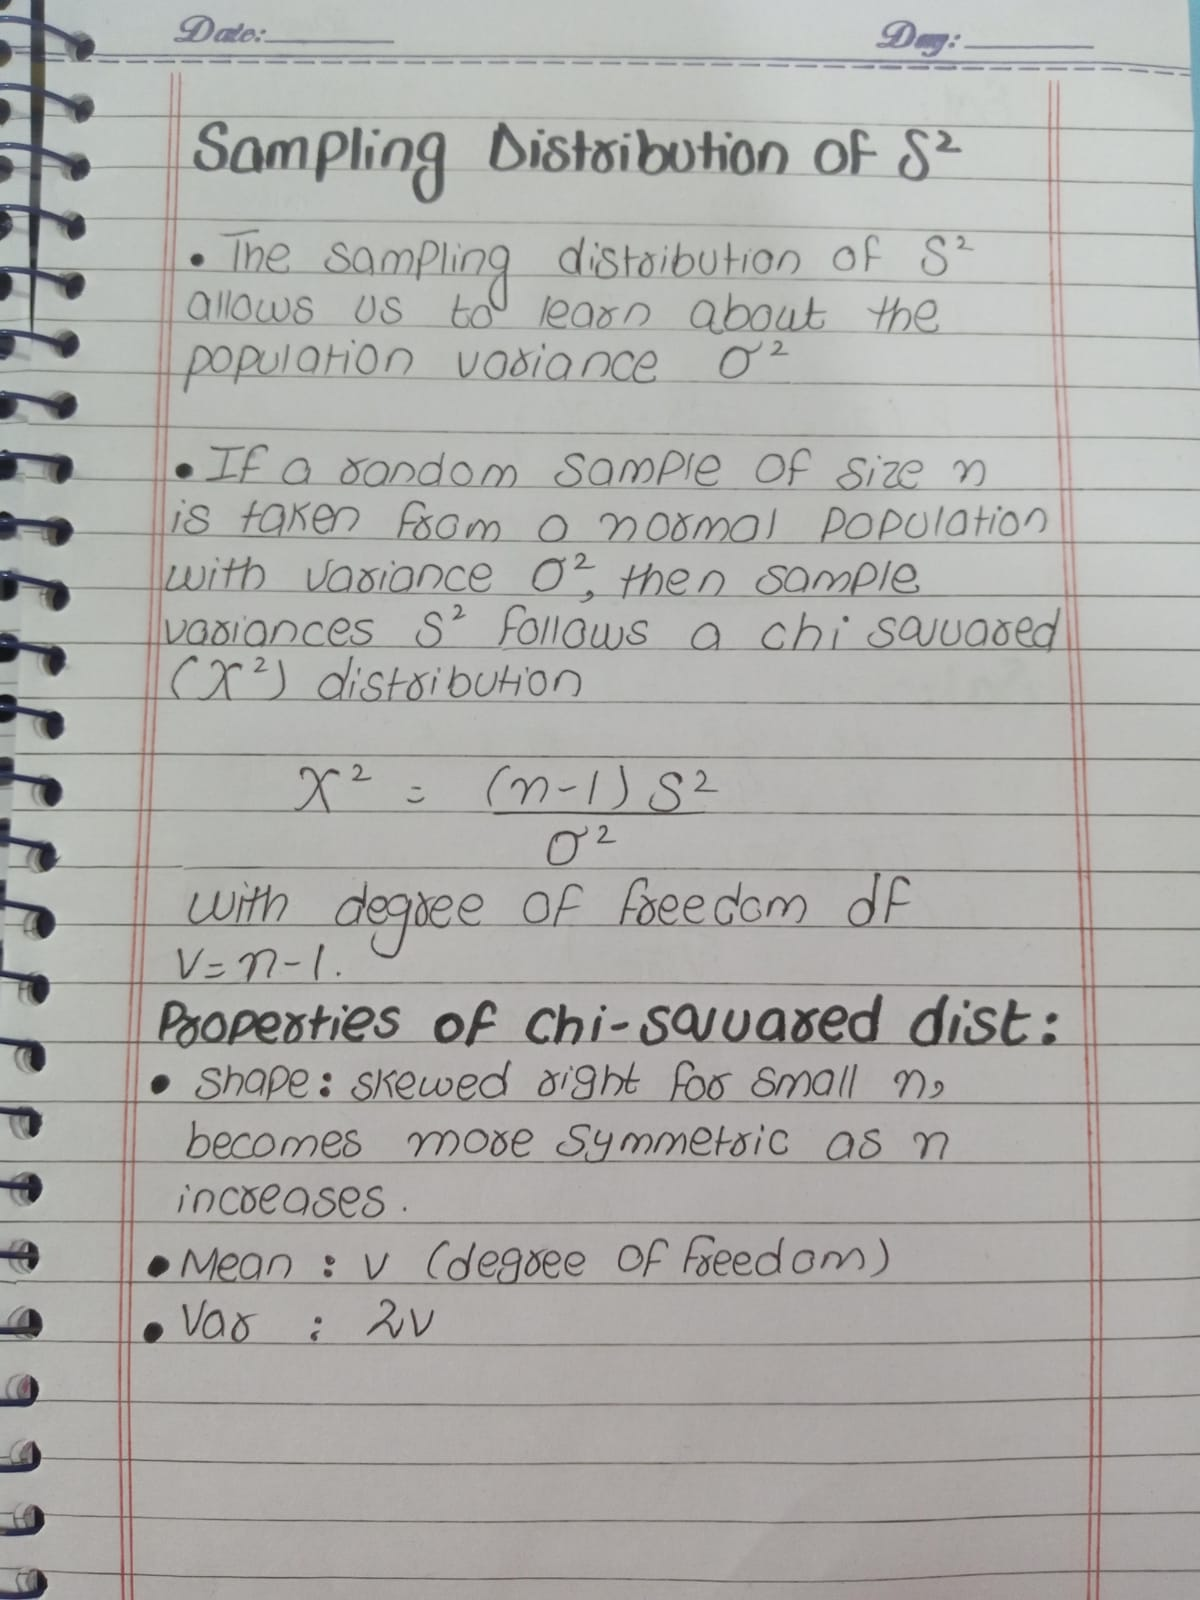 Date:
Day:
Sampling Distribution of S²
• The sampling distribution of S²
allows us to learn about the
population variance σ²
• If a random sample of size n
is taken from a normal population
with variance σ², then sample
variances S² follows a chi sqyuared
(χ²) distribution
χ² = (n-1) S²
σ²
with degree of freedom df
v = n-1.
Properties of chi-sqyuared dist:
• Shape: skewed right for small n,
becomes more symmetric as n
increases.
• Mean : v (degree of freedom)
• Var : 2v